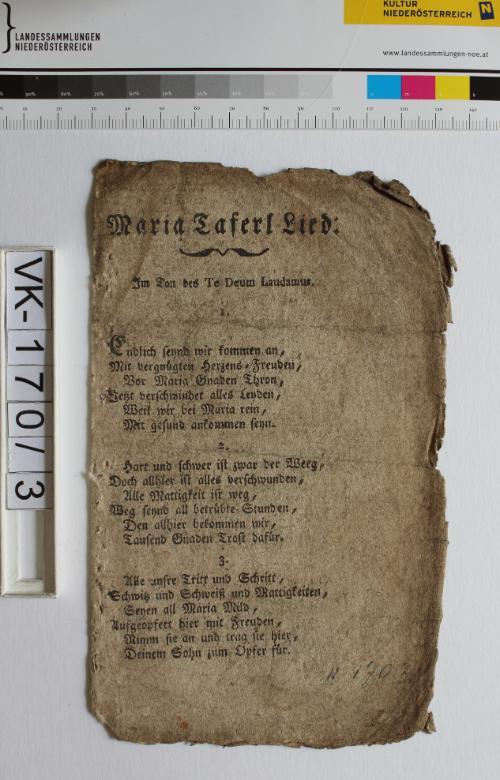 LANDESSAMMLUNGEN
NIEDERÖSTERREICH
KULTUR
NIEDERÖSTERREICH
www.landessammlungen-noe.at
VK-1707/3
Maria Taferl Lied:
Im Ton des Te Deum Laudamus.
1.
Endlich seynd wir kommen an,
Mit vergnügten Herzens-Freuden,
Vor Maria Gnaden Thron,
Jetzt verschwindet alles Leyden,
Weil wir bei Maria rein,
Mit gesund ankommen seyn.
2.
Hart und schwer ist zwar der Weeg,
Doch allhier ist alles verschwunden,
Alle Mattigkeit ist weg,
Weg seynd all betrübte Stunden,
Den allhier bekommen wir,
Tausend Gnaden Trost dafür.
3.
Alle unsre Tritt und Schritt,
Schwitz und Schweiß und Mattigkeiten,
Seyen all Maria Mild,
Aufgeopfert hier mit Freuden,
Nimm sie an und trag sie hier,
Deinem Sohn zum Opfer für.